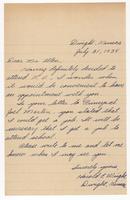 Dwight, Kansas
July 31, 1939
Dear Mr. Allen:
Having definitely decided to
attend I wonder when
it would be convenient to have
an appointment with you.
In your letter to
you stated that
I could get a job. It will be
necessary that I get a job to
attend school.
Please write to me and let me
know when I may see you.
Sincerely yours
Wright
Dwight, Kansas